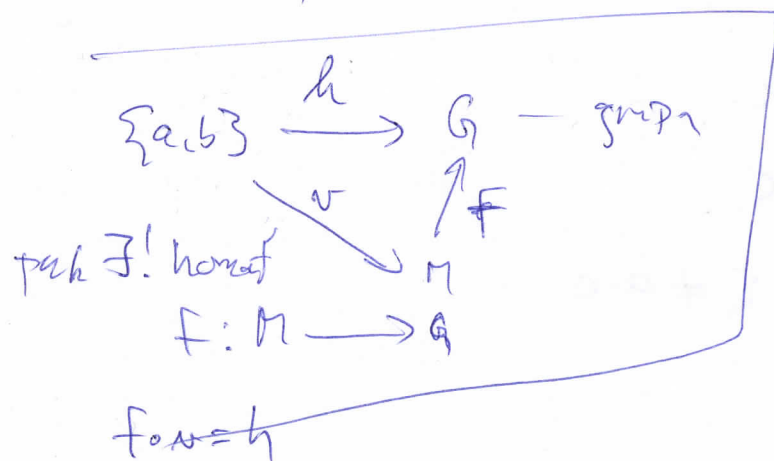 h
{a,b} ⟶ G — grupa
v
F
M
pak ∃! homof
f : M ⟶ G
f∘v = h